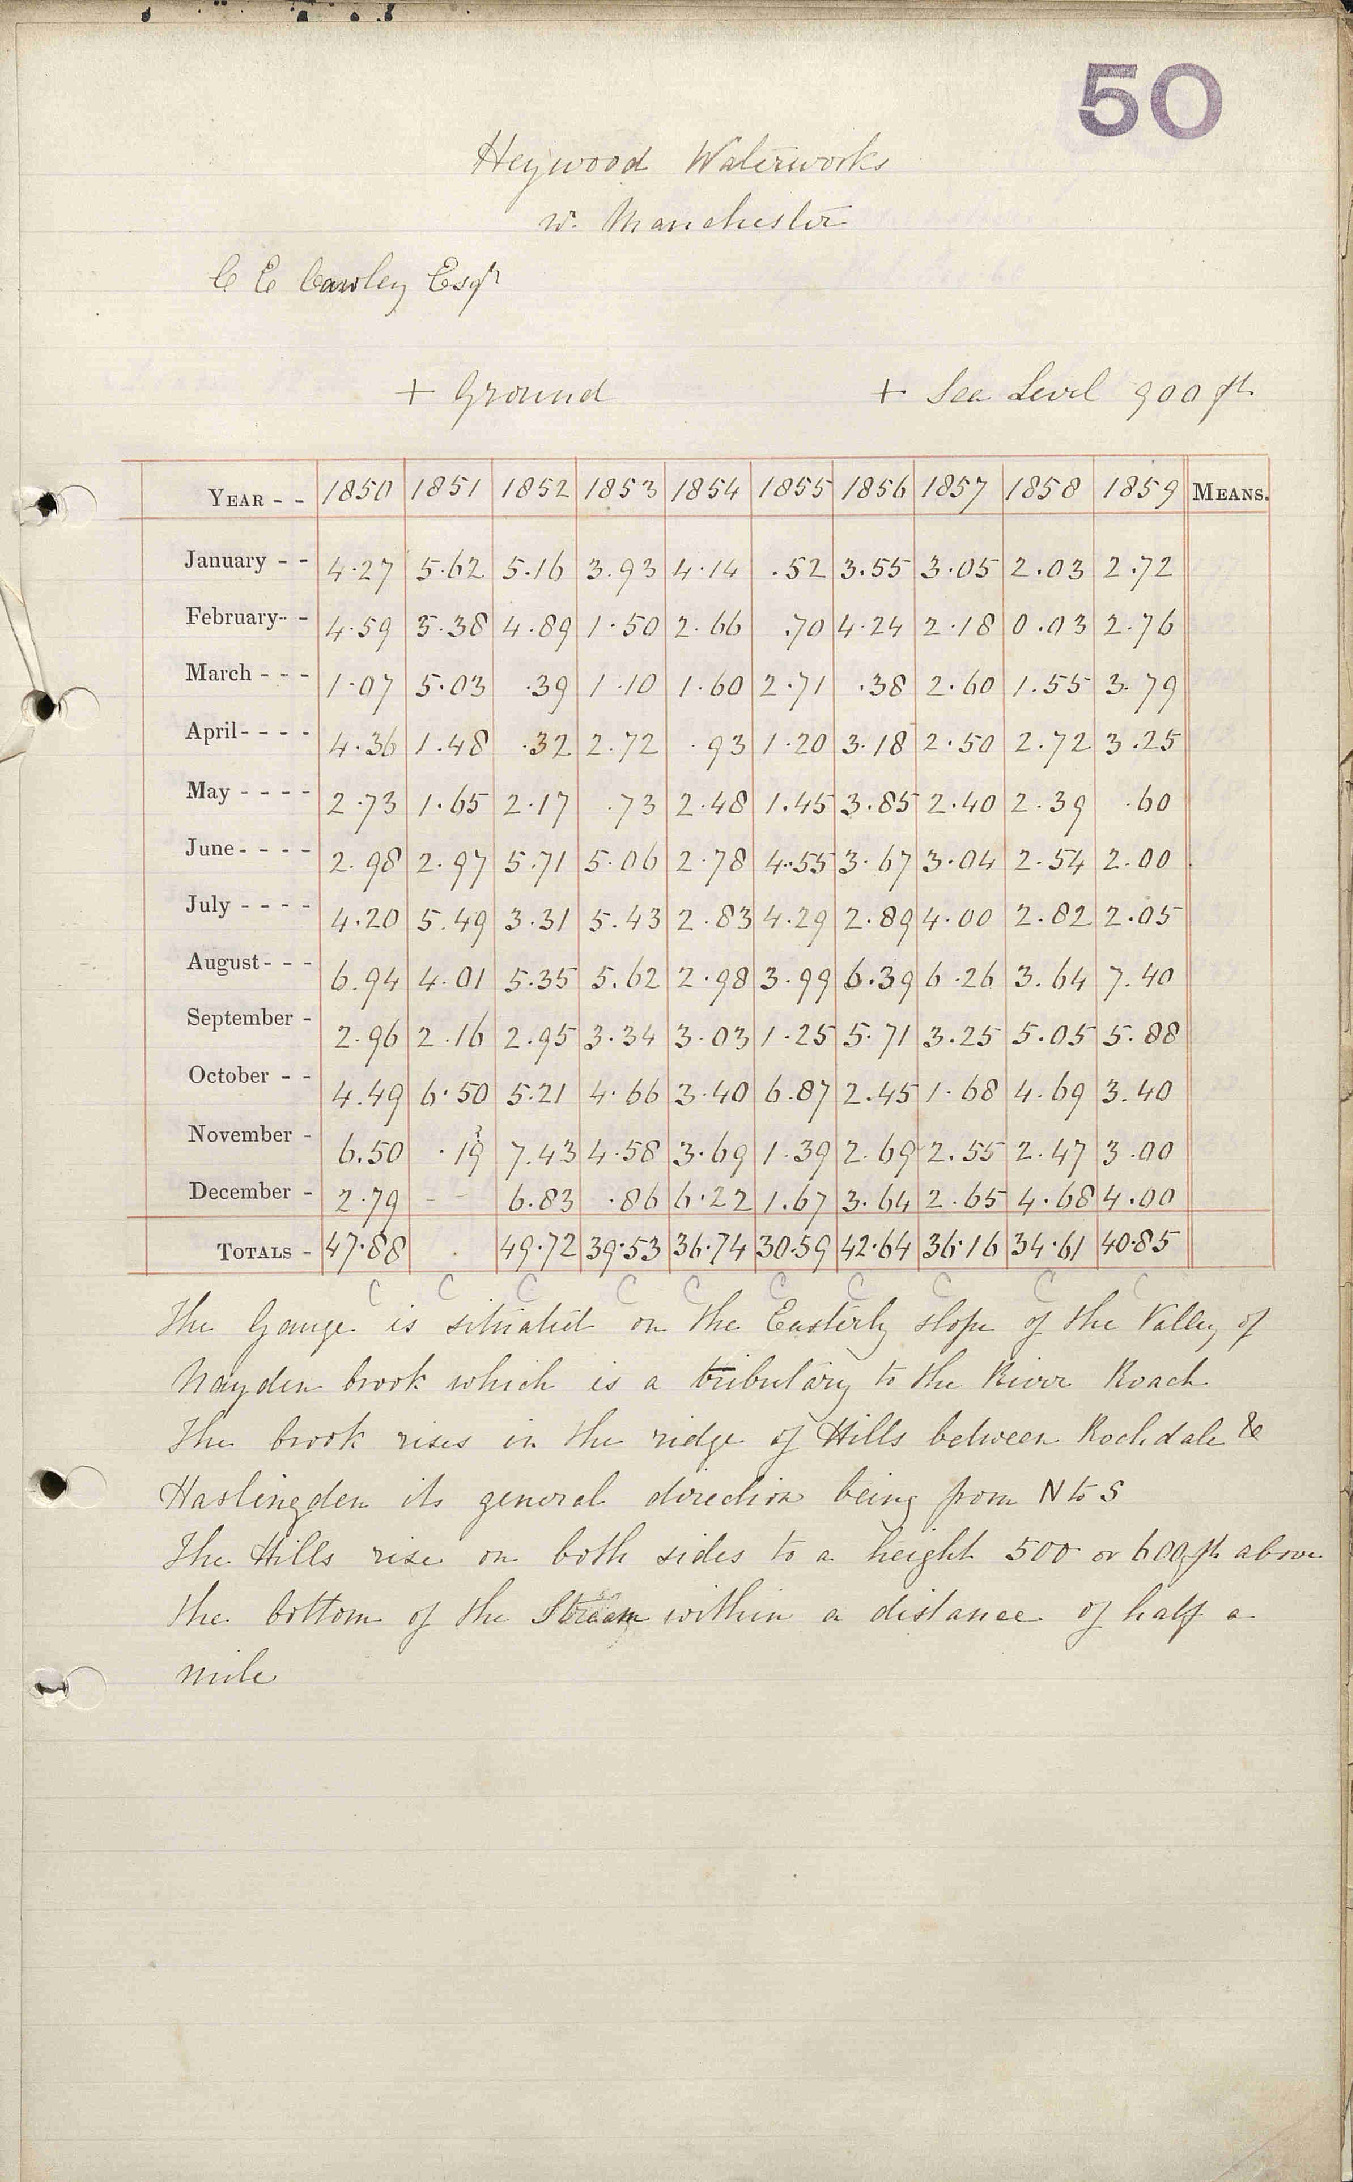 50
Heywood Waterworks
nr. Manchester
C E Cawley Esqr
+ Ground + Sea Level 900 ft
YEAR - - 1850 1851 1852 1853 1854 1855 1856 1857 1858 1859 MEANS.
January - - 4.27 5.62 5.16 3.93 4.14 .52 3.55 3.05 2.03 2.72
February - - 4.59 3.38 4.89 1.50 2.66 .70 4.24 2.18 0.03 2.76
March - - - 1.07 5.03 .39 1.10 1.60 2.71 .38 2.60 1.55 3.79
April - - - - 4.36 1.48 .32 2.72 .93 1.20 3.18 2.50 2.72 3.25
May - - - - 2.73 1.65 2.17 .73 2.48 1.45 3.85 2.40 2.39 .60
June - - - - 2.98 2.97 5.71 5.06 2.78 4.55 3.67 3.04 2.54 2.00
July - - - - 4.20 5.49 3.31 5.43 2.83 4.29 2.89 4.00 2.82 2.05
August - - - 6.94 4.01 5.35 5.62 2.98 3.99 6.39 6.26 3.64 7.40
September - 2.96 2.16 2.95 3.34 3.03 1.25 5.71 3.25 5.05 5.88
October - - 4.49 6.50 5.21 4.66 3.40 6.87 2.45 1.68 4.69 3.40
November - 6.50 .19? 7.43 4.58 3.69 1.39 2.69 2.55 2.47 3.00
December - 2.79 - - 6.83 .86 6.22 1.67 3.64 2.65 4.68 4.00
TOTALS - 47.88 . 49.72 39.53 36.74 30.59 42.64 36.16 34.61 40.85
C C C C C C C C C C
The Gauge is situated on the Easterly slope of the Valley of
Nayden brook which is a tributary to the River Roach
The brook rises in the ridge of Hills between Rochdale &
Haslingden its general direction being from N to S
The Hills rise on both sides to a height 500 or 600 ft above
the bottom of the Stream within a distance of half a
mile